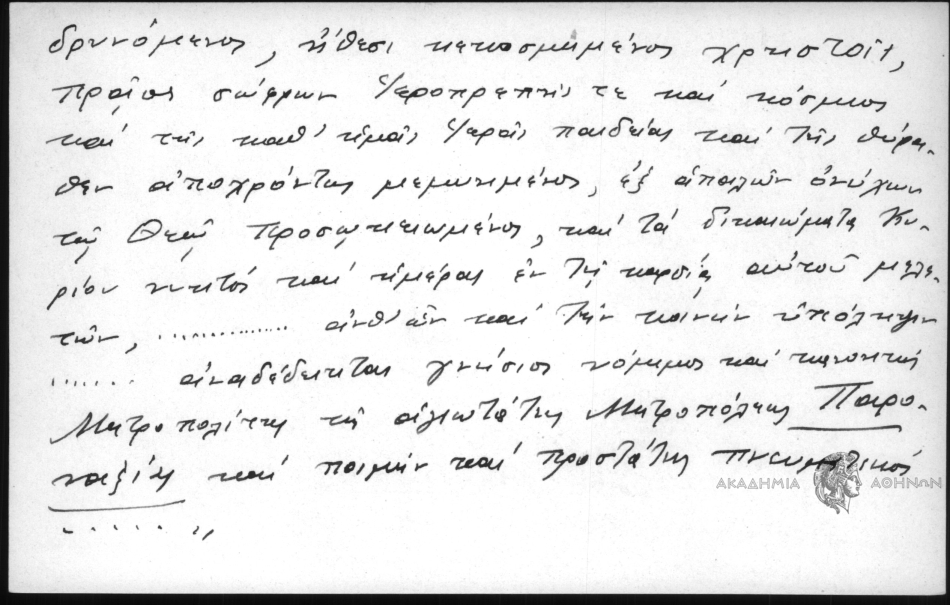 δρυνόμενος, ἤθεσι κεκοσμημένος χρηστοῖς,
πρᾶος σώφρων ἱεροπρεπής τε καί κόσμιος
καί τῆς καθ' ἡμᾶς ἱερᾶς παιδείας καί τῆς θύρα-
θεν ἀποχρώντως μεμυημένος, ἐξ ἁπαλῶν ὀνύχων
τῷ Θεῷ προσῳκειωμένος, καί τά δικαιώματα Κυ-
ρίου νυκτός καί ἡμέρας ἐν τῇ καρδίᾳ αὐτοῦ μελε-
τῶν, .............. ἀνθ' ὧν καί τήν κοινήν ὑπόληψιν
....... ἀναδέδεικται γνήσιος νόμιμος καί κανονικός
Μητροπολίτης τῆς ἁγιωτάτης Μητροπόλεως Παρο-
ναξίας καί ποιμήν καί προστάτης πνευματικός
......,,
ΑΚΑΔΗΜΙΑ ΑΘΗΝΩΝ